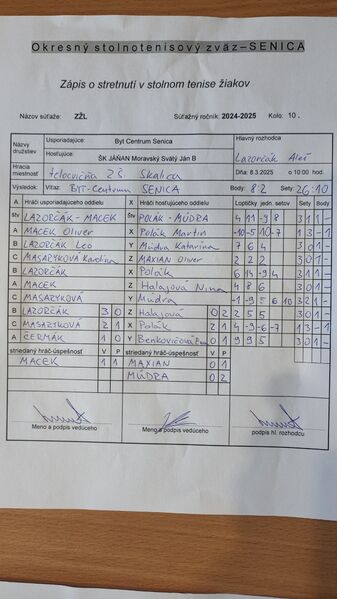 Okresný stolnotenisový zväz–SENICA
Zápis o stretnutí v stolnom tenise žiakov
Názov súťaže: ZŽL Súťažný ročník: 2024-2025 Kolo: 10.
Názov družstiev Usporiadajúce: Byt Centrum Senica Hlavný rozhodca
Hosťujúce: ŠK JÁŇAN Moravský Svätý Ján B Lazorčák Aleš
Hracia miestnosť telocvičňa ZŠ. Skalica Dňa: 8.3.2025 o 10:00 hod.
Výsledok Víťaz: BYT-Centrum SENICA Body: 8:2 Sety: 26:10
A Hráči usporiadajúceho oddielu X Hráči hosťujúceho oddielu Loptičky jedn. setov Sety Body
štv LAZORČÁK - MACEK štv POLÁK - MÚDRA 4 11 -9 8 3 1 1 -
A MACEK Oliver X Polák Martin -10 -5 10 -7 1 3 - 1
B LAZORČÁK Leo Y Múdra Katarína 7 6 4 3 0 1 -
C MASARYKOVÁ Karolína Z MAXIAN Oliver 2 2 2 3 0 1 -
B LAZORČÁK X Polák 6 14 -9 4 3 1 1 -
A MACEK Z Halajová Nina 4 8 6 3 0 1 -
C MASARYKOVÁ Y Múdra -1 -9 5 6 10 3 2 1 -
B LAZORČÁK 3 0 Z Halajová 0 2 2 5 5 3 0 1 -
C MASARYKOVÁ 2 1 X Polák 2 1 4 -9 -6 -7 1 3 - 1
A ČERMÁK 1 0 Y Benkovičová 0 1 9 9 5 3 0 1 -
striedaný hráč-úspešnosť V P striedaný hráč-úspešnosť V P
MACEK 1 1 MAXIAN 0 1
MÚDRA 0 2
Meno a podpis vedúceho Meno a podpis vedúceho podpis hl. rozhodcu